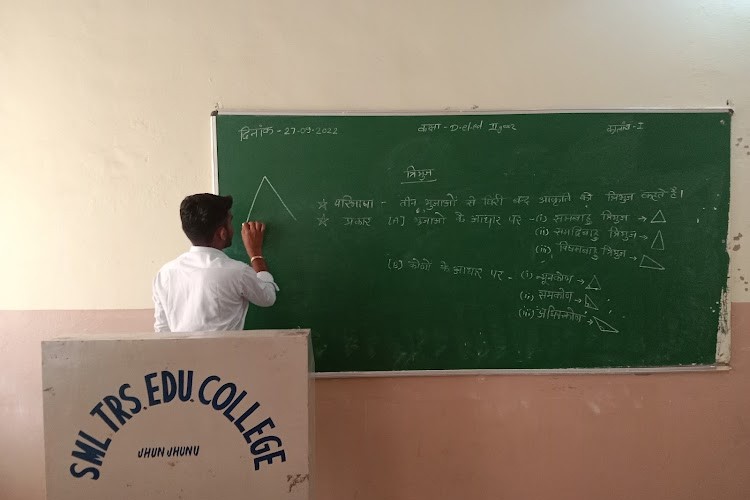 दिनांक - 27-09-2022
कक्षा - D.el.ed II year
कालांश - I
त्रिभुज
☆ परिभाषा - तीन भुजाओं से घिरी बन्द आकृति को त्रिभुज कहते है।
☆ प्रकार (A) भुजाओं के आधार पर - (i) समबाहु त्रिभुज →
(ii) समद्विबाहु त्रिभुज →
(iii) विषमबाहु त्रिभुज →
(B) कोणों के आधार पर - (i) न्यूनकोण →
(ii) समकोण →
(iii) अधिककोण →
SML.TRS.EDU.COLLEGE
JHUNJHUNU